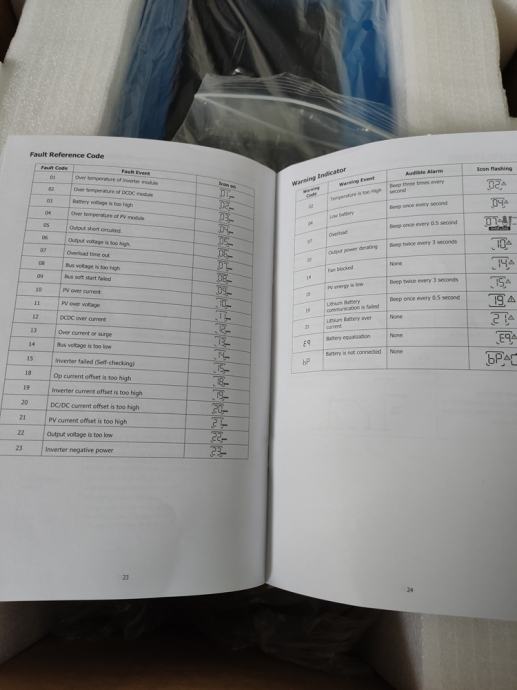 Fault Reference Code
Fault Code Fault Event Icon on
01 Over temperature of inverter module 01
02 Over temperature of DCDC module 02
03 Battery voltage is too high 03
04 Over temperature of PV module 04
05 Output short circuited. 05
06 Output voltage is too high. 06
07 Overload time out 07
08 Bus voltage is too high 08
09 Bus soft start failed 09
10 PV over current 10
11 PV over voltage 11
12 DCDC over current 12
13 Over current or surge 13
14 Bus voltage is too low 14
15 Inverter failed (Self-checking) 15
18 Op current offset is too high 18
19 Inverter current offset is too high 19
20 DC/DC current offset is too high 20
21 PV current offset is too high 21
22 Output voltage is too low 22
23 Inverter negative power 23
23
Warning Indicator
Warning Code Warning Event Audible Alarm Icon flashing
02 Temperature is too High Beep three times every second 02
04 Low battery Beep once every second 04
07 Overload Beep once every 0.5 second 07
10 Output power derating Beep twice every 3 seconds 10
14 Fan blocked None 14
15 PV energy is low Beep twice every 3 seconds 15
19 Lithium Battery communication is failed Beep once every 0.5 second 19
21 Lithium Battery over current None 21
E9 Battery equalization None E9
bP Battery is not connected None bP
24